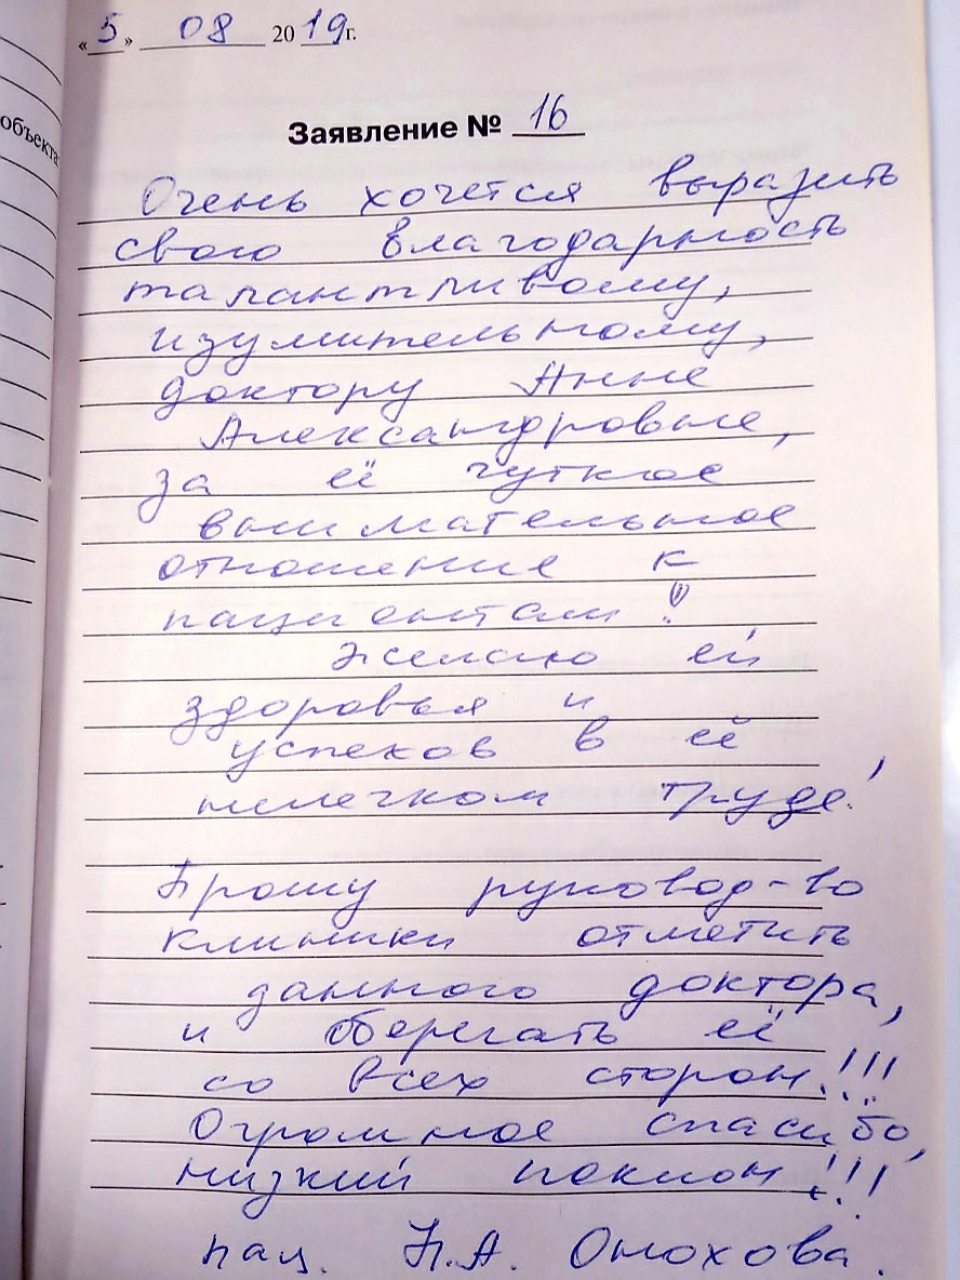 «5» 08 2019г.
объекта
Заявление № 16
Очень хочется выразить
свою благодарность
талантливому,
изумительному,
доктору Анне
Александровне,
за её чуткое
внимательное
отношение к
пациентам!
Желаю ей
здоровья и
успехов в её
нелегком труде!
Прошу руковод-во
клиники отметить
данного доктора,
и оберегать её
со всех сторон!!!
Огромное спасибо,
низкий поклон!!!
пац. Н.А. Онохова.